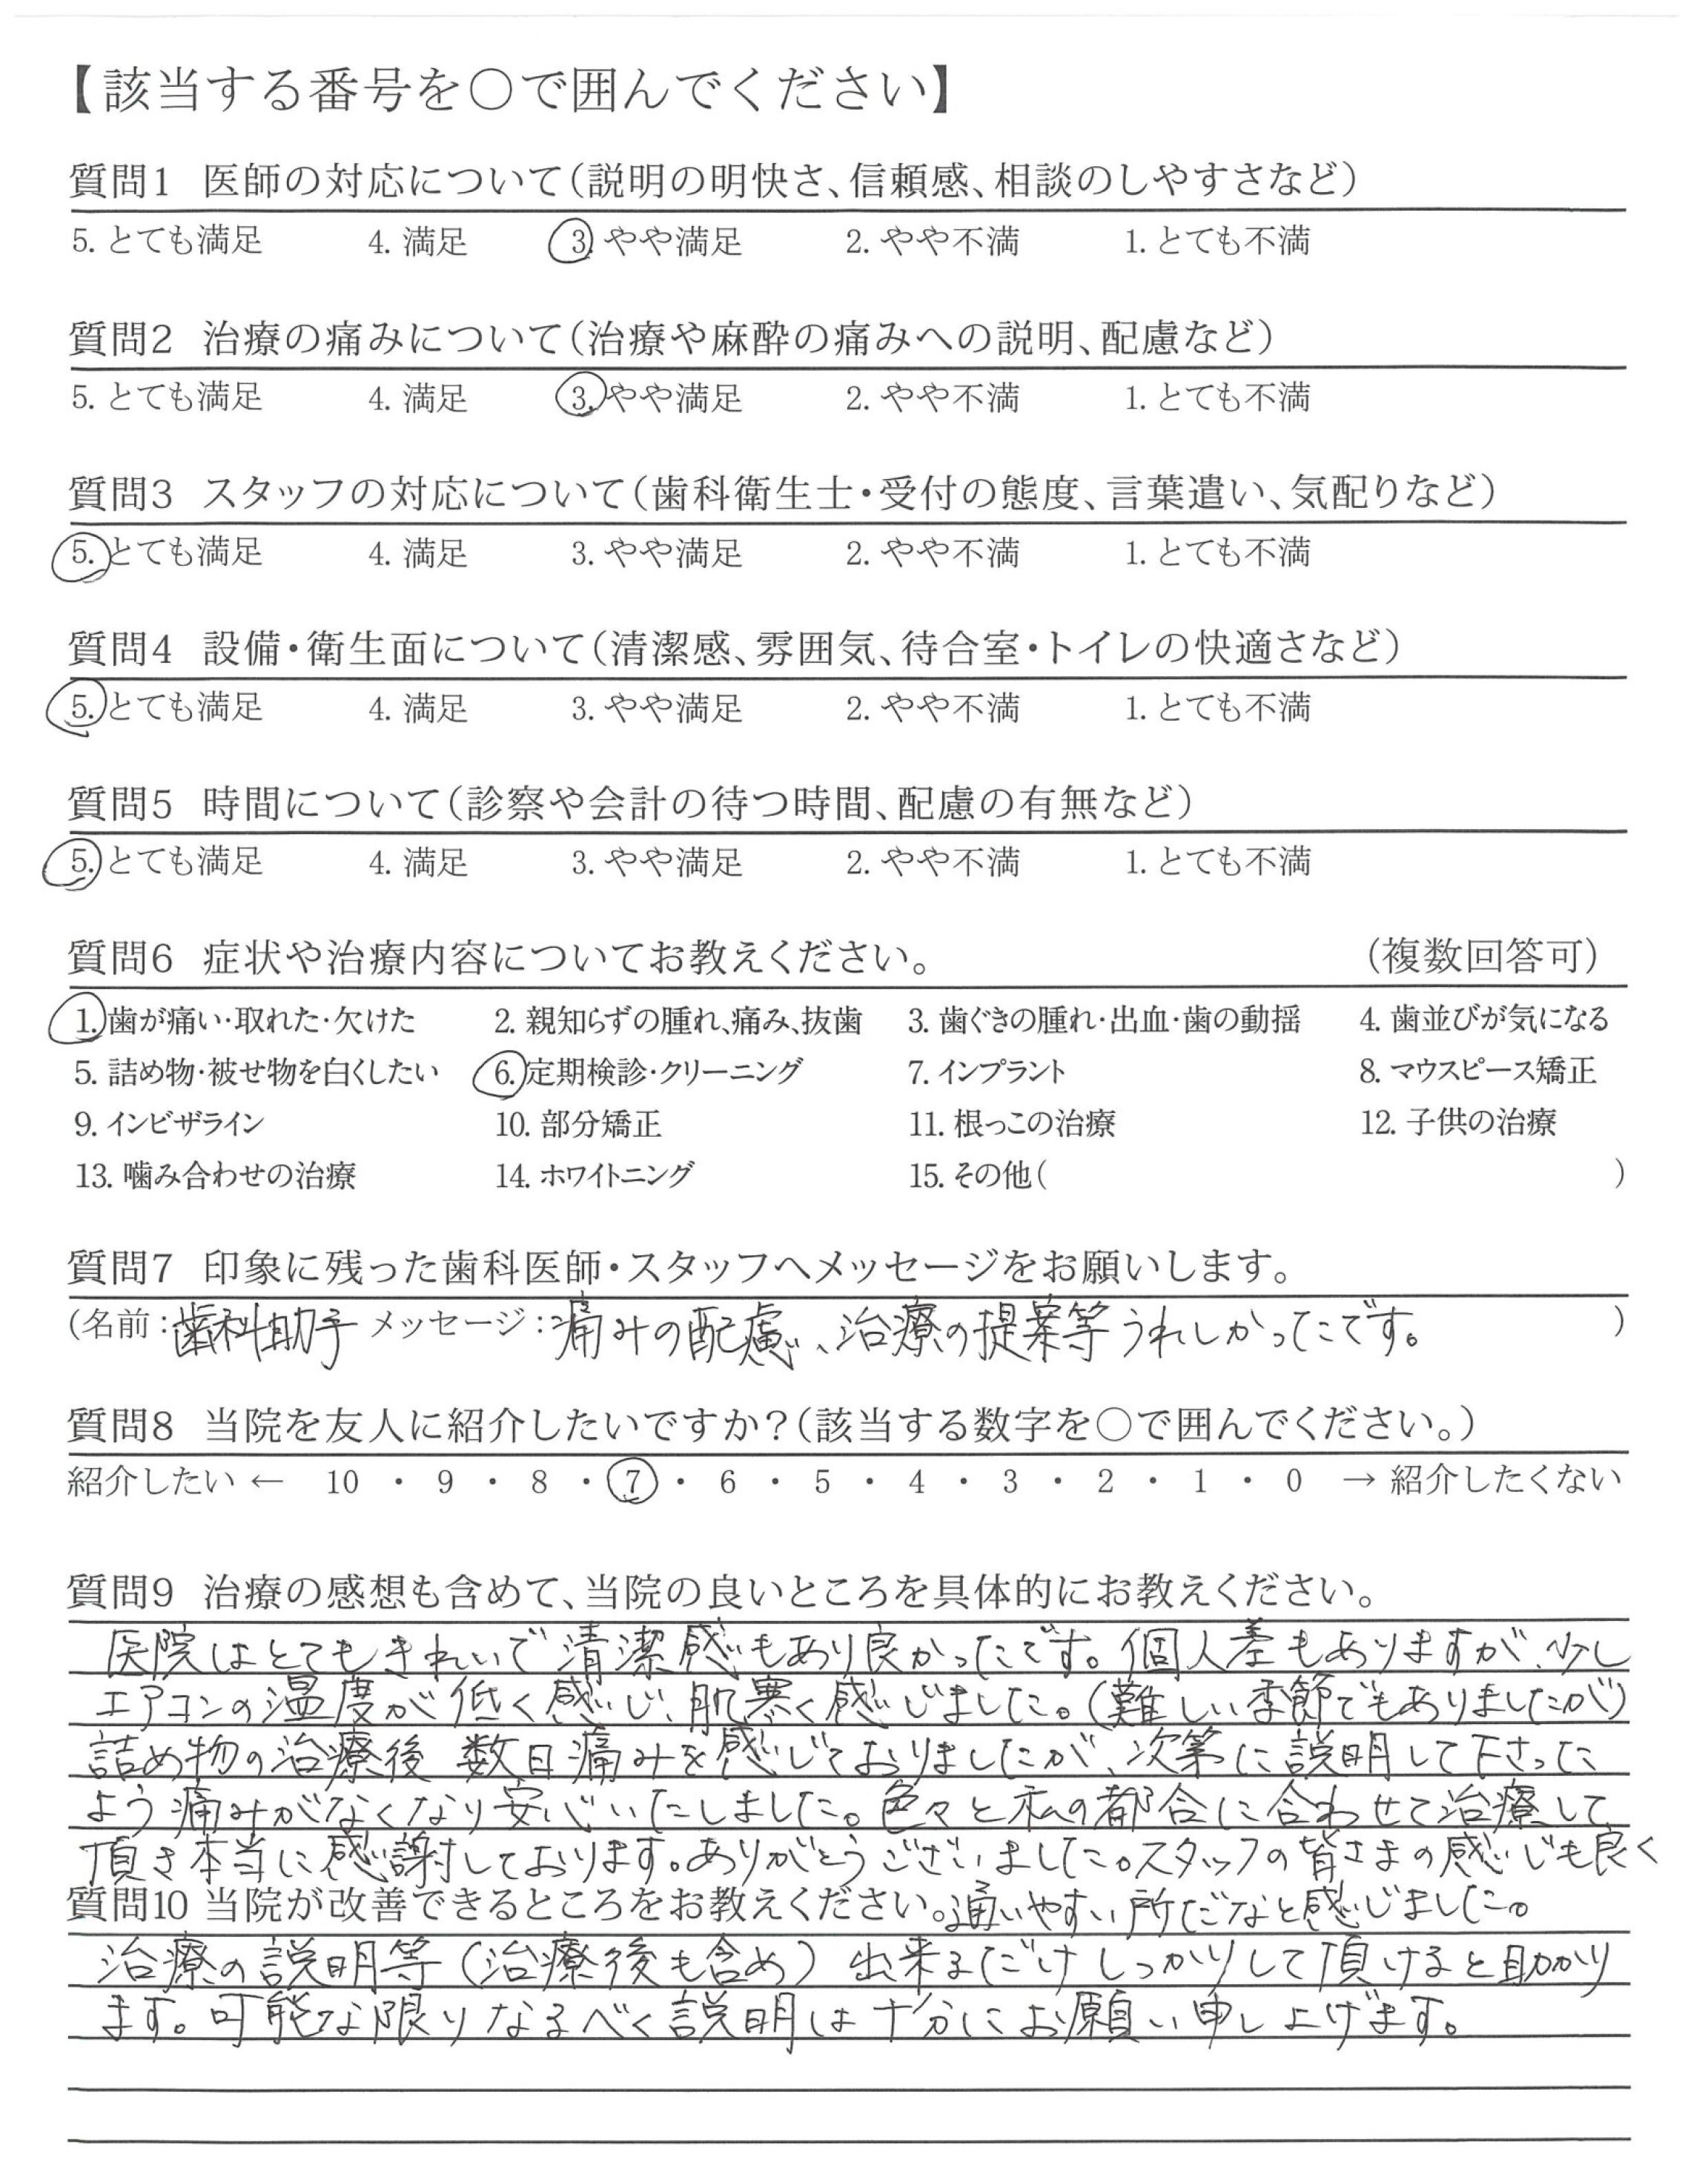 【該当する番号を○で囲んでください】
質問1 医師の対応について(説明の明快さ、信頼感、相談のしやすさなど)
5. とても満足 4. 満足 3. やや満足 2. やや不満 1. とても不満
質問2 治療の痛みについて(治療や麻酔の痛みへの説明、配慮など)
5. とても満足 4. 満足 3. やや満足 2. やや不満 1. とても不満
質問3 スタッフの対応について(歯科衛生士・受付の態度、言葉遣い、気配りなど)
5. とても満足 4. 満足 3. やや満足 2. やや不満 1. とても不満
質問4 設備・衛生面について(清潔感、雰囲気、待合室・トイレの快適さなど)
5. とても満足 4. 満足 3. やや満足 2. やや不満 1. とても不満
質問5 時間について(診察や会計の待つ時間、配慮の有無など)
5. とても満足 4. 満足 3. やや満足 2. やや不満 1. とても不満
質問6 症状や治療内容についてお教えください。 (複数回答可)
1. 歯が痛い・取れた・欠けた 2. 親知らずの腫れ、痛み、抜歯 3. 歯ぐきの腫れ・出血・歯の動揺 4. 歯並びが気になる
5. 詰め物・被せ物を白くしたい 6. 定期検診・クリーニング 7. インプラント 8. マウスピース矯正
9. インビザライン 10. 部分矯正 11. 根っこの治療 12. 子供の治療
13. 噛み合わせの治療 14. ホワイトニング 15. その他( )
質問7 印象に残った歯科医師・スタッフへメッセージをお願いします。
(名前:歯科助手 メッセージ:痛みの配慮、治療の提案等うれしかったです。 )
質問8 当院を友人に紹介したいですか?(該当する数字を○で囲んでください。)
紹介したい ← 10 ・ 9 ・ 8 ・ 7 ・ 6 ・ 5 ・ 4 ・ 3 ・ 2 ・ 1 ・ 0 → 紹介したくない
質問9 治療の感想も含めて、当院の良いところを具体的にお教えください。
医院はとてもきれいで清潔感もあり良かったです。個人差もありますが、少し
エアコンの温度が低く感じ、肌寒く感じました。(難しい季節でもありましたが)
詰め物の治療後 数日痛みを感じておりましたが、次第に説明して下さった
よう痛みがなくなり安心いたしました。色々と私の都合に合わせて治療して
頂き本当に感謝しております。ありがとうございました。スタッフの皆さまの感じも良く
質問10 当院が改善できるところをお教えください。通いやすい所だなと感じました。
治療の説明等(治療後も含め)出来るだけしっかりして頂けると助かり
ます。可能な限りなるべく説明は十分にお願い申し上げます。